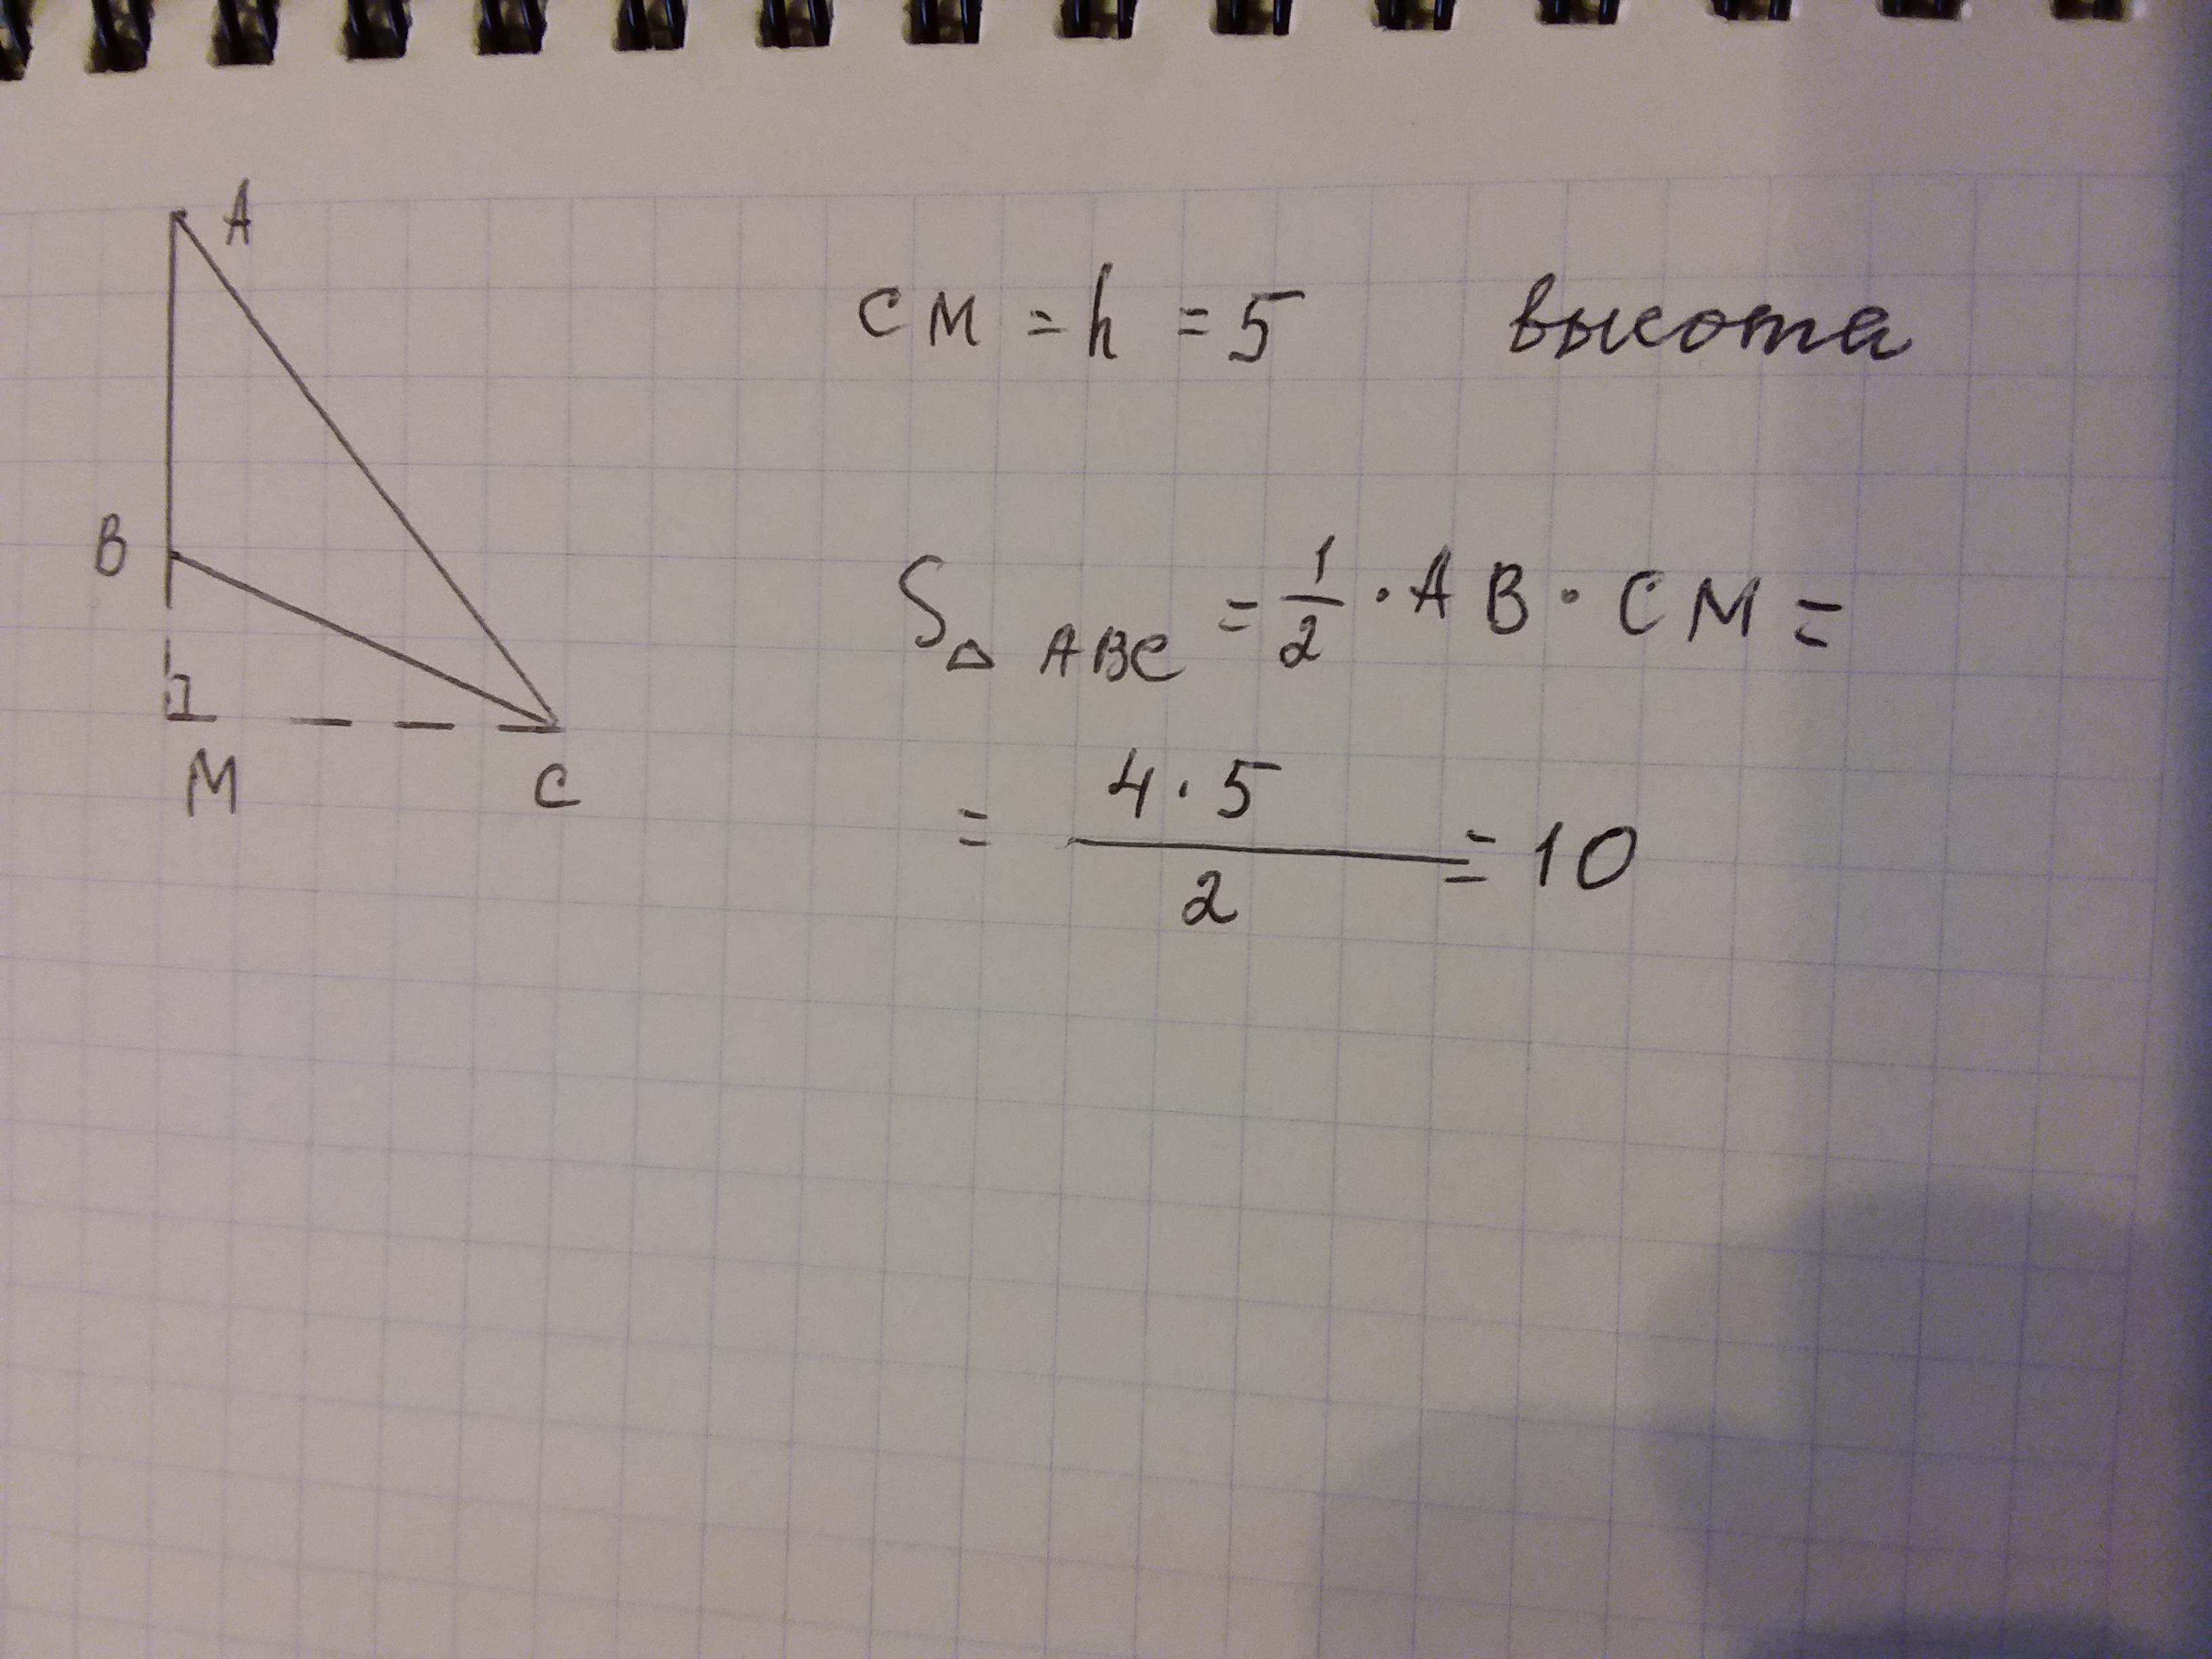 A
B
M C
CM = h = 5 высота
S△ ABC = 1/2 · AB · CM =
= 4 · 5 / 2 = 10